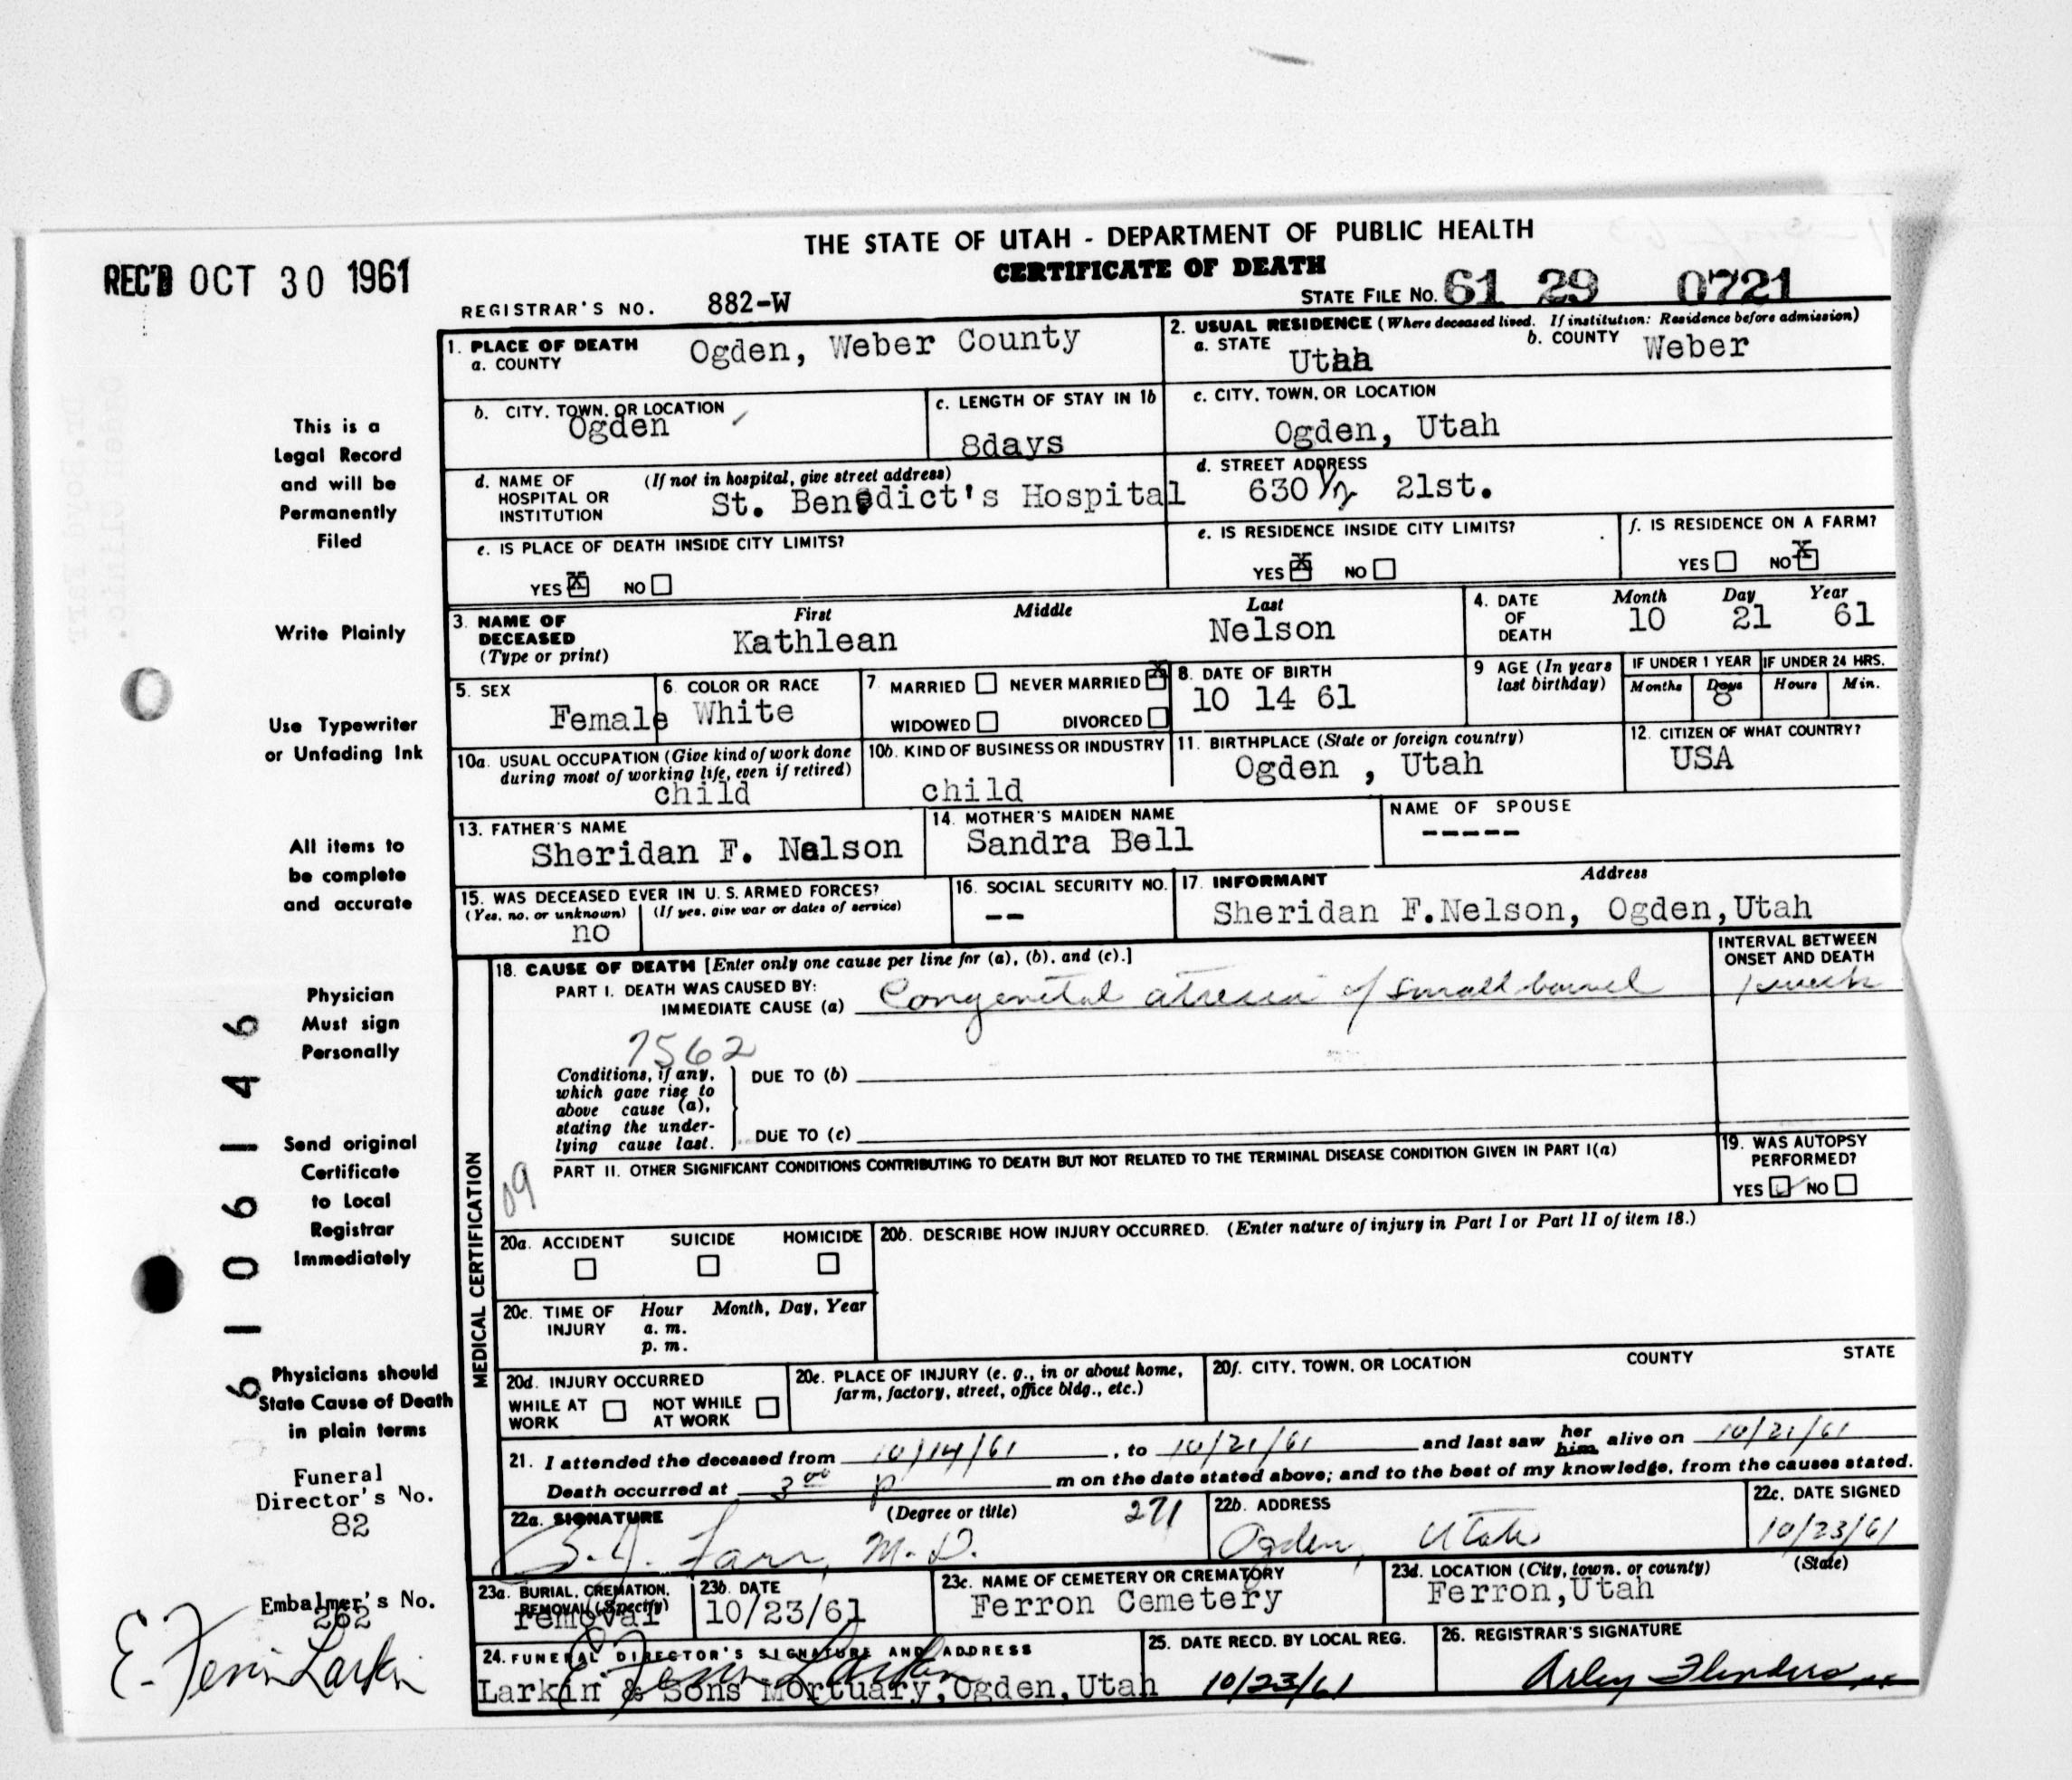 THE STATE OF UTAH - DEPARTMENT OF PUBLIC HEALTH
CERTIFICATE OF DEATH
REC'D OCT 30 1961
REGISTRAR'S NO. 882-W
STATE FILE NO. 61 29 0721
1. PLACE OF DEATH
a. COUNTY Ogden, Weber County
2. USUAL RESIDENCE (Where deceased lived. If institution: Residence before admission)
a. STATE Utah b. COUNTY Weber
b. CITY, TOWN, OR LOCATION
Ogden
c. LENGTH OF STAY IN 1b
8days
c. CITY, TOWN, OR LOCATION
Ogden, Utah
d. NAME OF HOSPITAL OR INSTITUTION (If not in hospital, give street address)
St. Benedict's Hospital
d. STREET ADDRESS
630 1/2 21st.
e. IS PLACE OF DEATH INSIDE CITY LIMITS?
YES X NO
e. IS RESIDENCE INSIDE CITY LIMITS?
YES X NO
f. IS RESIDENCE ON A FARM?
YES NO X
3. NAME OF DECEASED (Type or print)
First Middle Last
Kathlean Nelson
4. DATE OF DEATH Month Day Year
10 21 61
5. SEX
Female
6. COLOR OR RACE
White
7. MARRIED NEVER MARRIED X
WIDOWED DIVORCED
8. DATE OF BIRTH
10 14 61
9 AGE (In years last birthday)
IF UNDER 1 YEAR IF UNDER 24 HRS.
Months Days Hours Min.
8
10a. USUAL OCCUPATION (Give kind of work done during most of working life, even if retired)
child
10b. KIND OF BUSINESS OR INDUSTRY
child
11. BIRTHPLACE (State or foreign country)
Ogden , Utah
12. CITIZEN OF WHAT COUNTRY?
USA
13. FATHER'S NAME
Sheridan F. Nelson
14. MOTHER'S MAIDEN NAME
Sandra Bell
NAME OF SPOUSE
-----
15. WAS DECEASED EVER IN U. S. ARMED FORCES?
(Yes, no, or unknown) (If yes, give war or dates of service)
no
16. SOCIAL SECURITY NO.
--
17. INFORMANT Address
Sheridan F.Nelson, Ogden,Utah
MEDICAL CERTIFICATION
18. CAUSE OF DEATH [Enter only one cause per line for (a), (b), and (c).]
INTERVAL BETWEEN ONSET AND DEATH
PART I. DEATH WAS CAUSED BY:
IMMEDIATE CAUSE (a) Congenital atresia of small bowel 1 week
7562
Conditions, if any, which gave rise to above cause (a), stating the underlying cause last.
DUE TO (b)
DUE TO (c)
PART II. OTHER SIGNIFICANT CONDITIONS CONTRIBUTING TO DEATH BUT NOT RELATED TO THE TERMINAL DISEASE CONDITION GIVEN IN PART I(a)
19. WAS AUTOPSY PERFORMED?
YES NO
20a. ACCIDENT SUICIDE HOMICIDE
20b. DESCRIBE HOW INJURY OCCURRED. (Enter nature of injury in Part I or Part II of item 18.)
20c. TIME OF INJURY Hour Month, Day, Year
a. m.
p. m.
20d. INJURY OCCURRED
WHILE AT WORK NOT WHILE AT WORK
20e. PLACE OF INJURY (e. g., in or about home, farm, factory, street, office bldg., etc.)
20f. CITY, TOWN, OR LOCATION COUNTY STATE
21. I attended the deceased from 10/14/61, to 10/21/61 and last saw her him alive on 10/21/61
Death occurred at 3 00 p m on the date stated above; and to the best of my knowledge, from the causes stated.
22a. SIGNATURE (Degree or title) 271
Farr, M.D.
22b. ADDRESS
Ogden, Utah
22c. DATE SIGNED
10/23/61
23a. BURIAL, CREMATION, REMOVAL (Specify)
removal
23b. DATE
10/23/61
23c. NAME OF CEMETERY OR CREMATORY
Ferron Cemetery
23d. LOCATION (City, town, or county) (State)
Ferron,Utah
24. FUNERAL DIRECTOR'S SIGNATURE AND ADDRESS
Larkin & Sons Mortuary,Ogden,Utah
25. DATE RECD. BY LOCAL REG.
10/23/61
26. REGISTRAR'S SIGNATURE
This is a
Legal Record
and will be
Permanently
Filed
Write Plainly
Use Typewriter
or Unfading Ink
All items to
be complete
and accurate
Physician
Must sign
Personally
Send original
Certificate
to Local
Registrar
Immediately
Physicians should
State Cause of Death
in plain terms
Funeral
Director's No.
82
Embalmer's No.
262
6106146